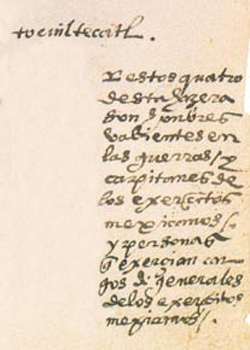 tocuiltecatl.
Estos quatro
desta hazera
son honbres
valientes en
las guerras / y
capitanes de
los exercitos
mexicanos /
y personas
q exercian car
gos de generales
de los exercitos
mexicanos /.